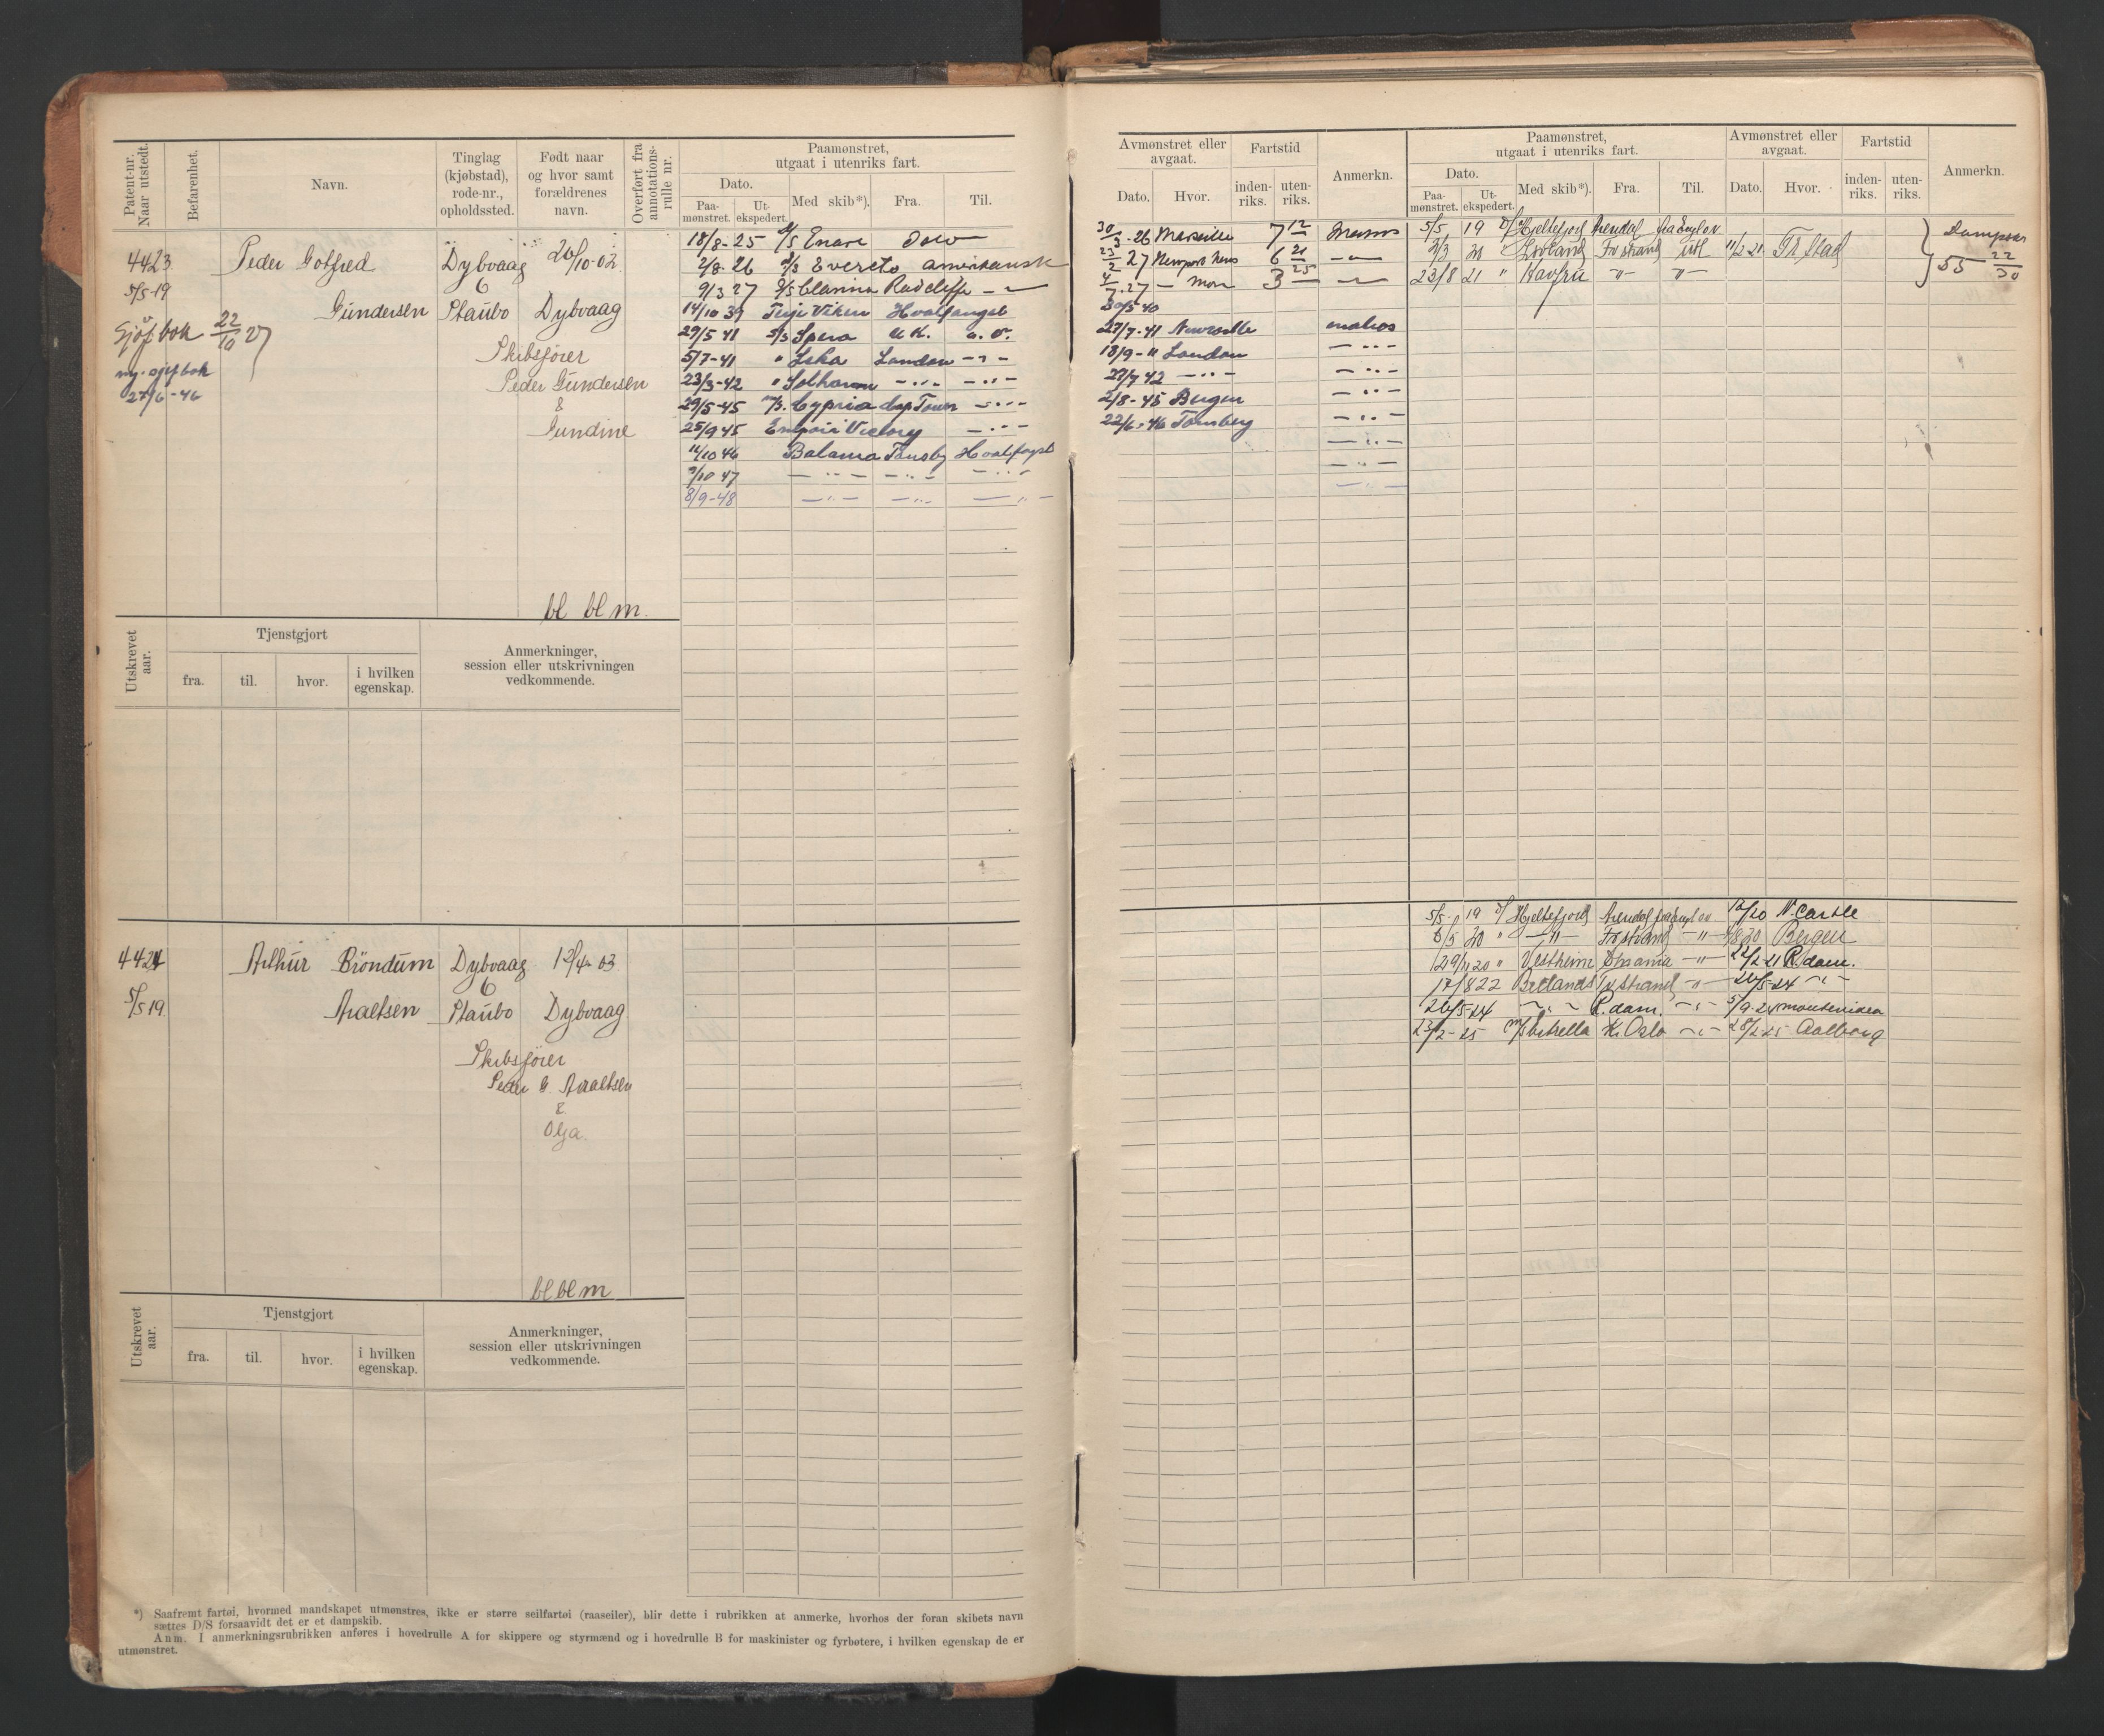 Patent-nr. Naar utstedt.
Befarenhet.
Navn.
Tinglag (kjøbstad), rode-nr., opholdssted.
Født naar og hvor samt forældrenes navn.
Overført fra annotations-rulle nr.
Paamønstret, utgaat i utenriks fart.
Dato.
Paa-mønstret.
Ut-ekspedert.
Med skib*).
Fra.
Til.
4423
5/5-19
Sjøf bok 22/10 27
ny. sjøf bok
27/6-46
Peder Gotfred
Gundersen
Dybvaag
6
Staubo
26/10-02
Dybvaag
Skibsfører
Peder Gundersen
&
Gundine
bl bl m.
18/8-25 D/S Enare
2/8-26 D/S Evereto amerikansk
9/3 27 D/S Clarissa Radcliffe — " —
14/10 39 Terje Viken Hvalfangst
29/5 41 S/S Spero U.K. a. o.
5/7-41 " Leka London - " -
23/3-42 " Solhavn - " - - " -
29/5-45 M/S. Cypria Cap Town - " -
25/9 45 Empire Victory - " -
11/10 46 Balæna Tønsbg Hvalfangst
9/10 47 - " - - " - - " -
8/9-48 - " - - " - - " -
Utskrevet aar.
Tjenstgjort
fra.
til.
hvor.
i hvilken egenskap.
Anmerkninger, session eller utskrivningen vedkommende.
4424
5/5 19
Arthur Bröndum
Araltsen
Dybvaag
6
Staubo
12/4-03
Dybvaag
Skibsfører
Peder G. Araltsen
&
Olga.
bl bl m
Utskrevet aar.
Tjenstgjort
fra.
til.
hvor.
i hvilken egenskap.
Anmerkninger, session eller utskrivningen vedkommende.
*) Saafremt fartøi, hvormed mandskapet utmønstres, ikke er større seilfartøi (raaseiler), blir dette i rubrikken at anmerke, hvorhos der foran skibets navn
sættes D/S forsaavidt det er et dampskib.
Anm. I anmerkningsrubrikken anføres i hovedrulle A for skippere og styrmænd og i hovedrulle B for maskinister og fyrbøtere, i hvilken egenskap de er
utmønstret.
Avmønstret eller avgaat.
Dato.
Hvor.
Fartstid
inden-riks.
uten-riks.
Anmerkn.
Paamønstret, utgaat i utenriks fart.
Dato.
Paa-mønstret.
Ut-ekspedert.
Med skib*).
Fra.
Til.
Avmønstret eller avgaat.
Dato.
Hvor.
Fartstid
inden-riks.
uten-riks.
Anmerkn.
30/3-26 Marseille 7 12
23/2 27 Newport News 6 21 - " -
4/7-27 3 25 - " -
30/5-40
27/7-41 Newcastle matros
18/9-" London - " -
27/7 42 - " - - " -
2/8-45 Bergen - " -
22/6-46 Tønsberg - " -
- " -
- " -
- " -
5/5 19 D/S Hjeltefjord Arendal
2/3 20 " Lovland Fr strand utl 11/2 21 Fr. Stad
23/8 21 " Havfru - " - - " -
55 22/30
5/5 19 D/S Hjeltefjord Arendal N. Castle
6/5 20 " - " - Fr strand - " - Bergen
29/11 20 " Vestheim - " - R.dam.
17/8 22 Bretland Fr strand - " - 26/5-24 - " -
26/5-24 - " - R.dam. - " - 5/9-24 Montevideo
23/2-25 M/S Estrella K. Oslo - " - 28/2 25 Aalborg